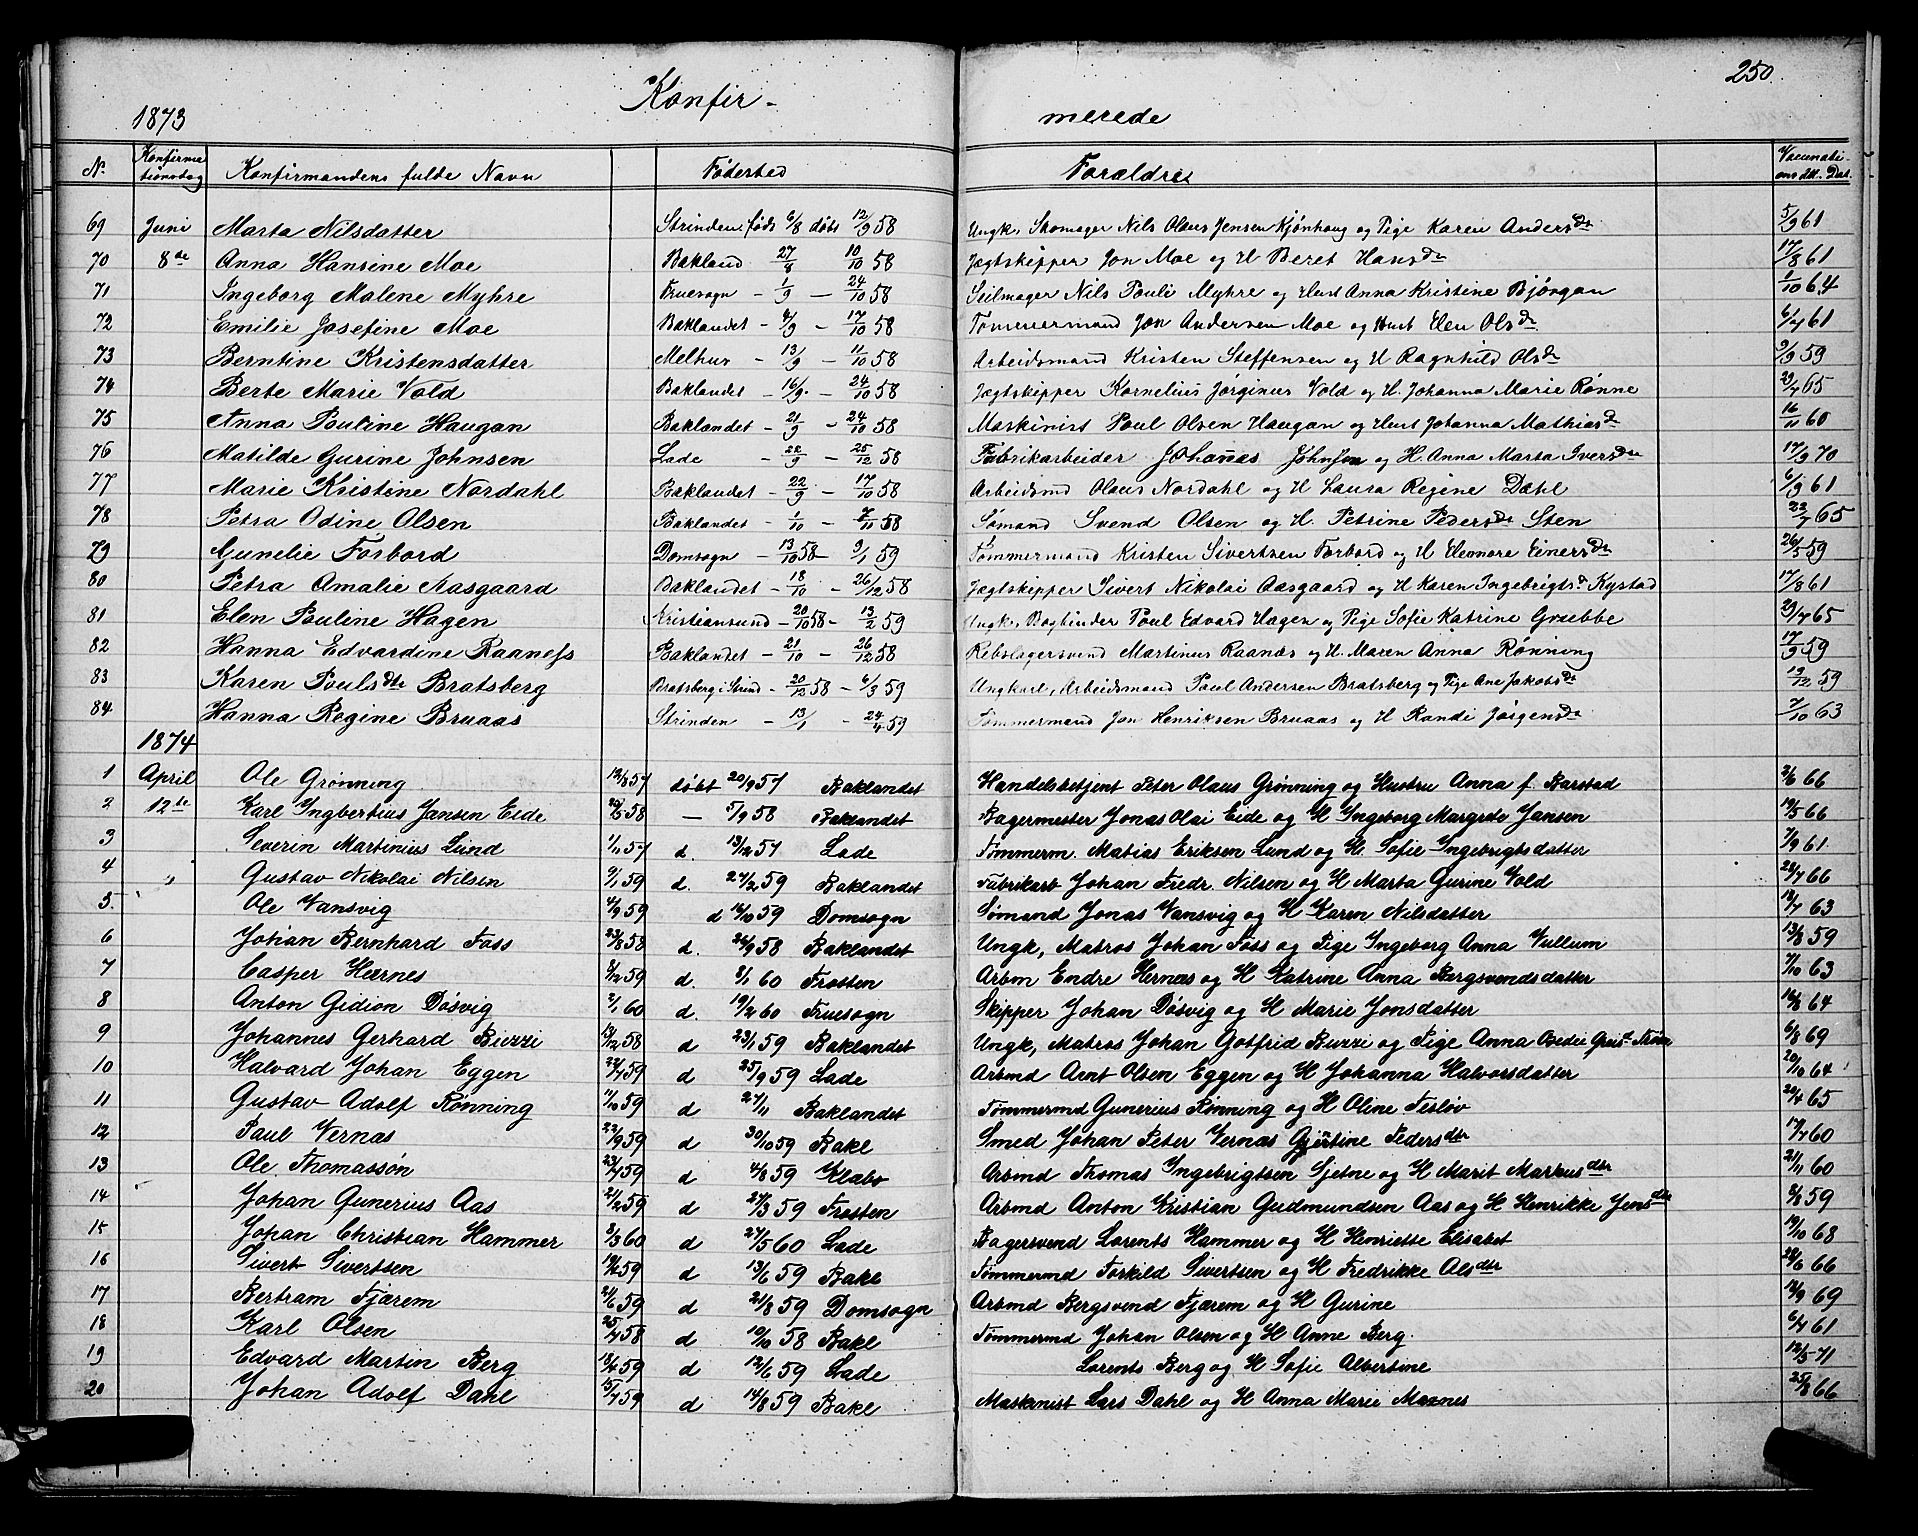 250.
Konfir- merede
1873
No. Konfirma tionsdag Konfirmandens fulde Navn Fødested Forældre Vaccinati- ons Att. Dat.
69 Juni Marta Nilsdatter Strinden født 6/8 døbt 12/9 58 Ungk, Skomager Nils Olaus Jensen Kjønhaug og Pige Karen Andersdtr 5/9 61
70 8de Anna Hansine Moe Bakland 27/8 10/10 58 Jægtskipper Jon Moe og H Beret Hansdtr 17/8 61
71 Ingeborg Malene Myhre Fruesogn - 1/9 - 24/10 58 Seilmager Nils Pauli Myhre og Hust Anna Kristine Bjørgan 1/10 64
72 Emilie Josefine Moe Baklandet - 4/9 - 17/10 58 Tømmermand Jon Andersen Moe og Hust Elen Olsdtr 6/4 61
73 Berntine Kristensdatter Melhus - 13/9 - 11/10 58 Arbeidsmand Kristen Steffensen og H Ragnhild Olsdtr 9/9 59
74 Berte Marie Vold Baklandet - 16/9 - 24/10 58 Jægtskipper Kornelius Jørginus Vold og H. Johanna Marie Rønne 29/7 65
75 Anna Pauline Haugan Baklandet - 21/9 - 24/10 58 Maskinist Poul Olsen Haugan og Hust Johanna Mathiasdtr 16/11 60
76 Matilde Gurine Johnsen Lade - 22/9 - 25/12 58 Fabrikarbeider Johanes Johnsen og H. Anna Marta Iversdtr 17/9 70
77 Marie Kristine Nordahl Baklandet - 22/9 - 17/10 58 Arbeidsmd Olaus Nordahl og H Laura Regine Dahl 6/9 61
78 Petra Odine Olsen Baklandet - 1/10 - 7/11 58 Sømand Svend Olsen og H. Petrine Pedersdtr Sten 22/7 65
79 Gunelie Forbord Domsogn - 13/10 58 - 9/1 59 Tømmermand Kristen Sivertsen Forbord og H Elenore Einersdtr 26/5 59
80 Petra Amalie Aasgaard Baklandet - 18/10 - 26/12 58 Jægtskipper Sivert Nikolai Aasgaard og H Karen Ingebrigtsd Kystad 17/8 61
81 Elen Pauline Hagen Kristiansund - 20/10 58 - 13/2 59 Ungk, Bogbinder Poul Edvard Hagen og Pige Sofie Katrine Grubbe 29/4 65
82 Hanna Edvardine Raaness Baklandet - 21/10 - 26/12 58 Rebslagersvend Martinus Raanæs og H. Maren Anna Rønning 17/9 59
83 Karen Poulsdtr Bratsberg Bratsberg i Strind - 20/12 58 - 6/3 59 Ungkarl, Arbeidsmand Paul Andersen Bratsberg og Pige Ane Jakobsdtr 12/12 59
84 Hanna Regine Bruaas Strinden - 13/1 - 24/4 59 Tømmermand Jon Henriksen Bruaas og H Randi Jørgensdtr 7/10 63
1874
1 April Ole Grønning 12/8 57 døbt 20/9 57 Baklandet Handelsbetjent Peter Olaus Grønning og Hustru Anna f. Barstad 2/6 66
2 12te Karl Ingbertius Jansen Eide 20/5 58 - 5/9 58 Baklandet Bagermester Jonas Olai Eide og H Ingeborg Margrete Jansen 19/5 66
3 Severin Martinius Lund 1/11 57 d. 13/12 57 Lade Tømmerm. Matias Eriksen Lund og H. Sofie Ingebrigtsdatter 7/9 61
4 Gustav Nikolai Nilsen 9/1 59 d. 27/2 59 Baklandet Fabrikarb Johan Fredr. Nilsen og H Marta Gurine Vold 22/7 66
5. Ole Vansvig 4/9 59 d 16/10 59 Domsogn Sømand Jonas Vansvig og H Karen Nilsdatter 13/7 63
6 Johan Bernhard Foss 23/8 58 d. 26/9 58 Baklandet Ungk, Matros Johan Foss og Pige Ingeborg Anna Vullum 13/8 59
7 Casper Hærnes 8/12 59 d. 8/1 60 Frosten Arbm Endre Hernæs og H Katrine Anna Bergsvendsdatter 7/10 63
8 Anton Gidion Døsvig 2/1 60 d. 19/2 60 Fruesogn Skipper Johan Døsvig og H Marie Jonsdatter 16/8 64
9 Johannes Gerhard Buzzi 13/12 58 d 23/1 59 Baklandet Ungk, Matros Johan Gotfrid Buzzi og Pige Anna 6/8 69
10 Halvard Johan Eggen 27/7 59 d 25/9 59 Lade Arbmd Arnt Olsen Eggen og H Johanna Halvorsdatter 20/10 64
11 Gustav Adolf Rønning 11/10 59 d 27/11 Baklandet Tømmermd Gunerius Rønning og H Oline Fesløv 20/4 65
12 Paul Vernæs 22/9 59 d 30/10 59 Bakl Smed Johan Peter Vernæs Gjertine Pedersdtr 17/7 60
13 Ole Thomassøn 23/4 59 d 4/8 59 Klæbo Arbmd Thomas Ingebrigtsen Sjetne og H Marit Markusdtr 21/11 60
14 Johan Gunerius Aas 21/2 59 d 27/3 59 Frosten Arbmd Anton Kristian Gudmundsen Aas og H Henrikke Jensdtr 8/8 59
15 Johan Christian Hammer 8/3 60 d 27/5 60 Lade Bagersvend Lorents Hammer og H Henriette Elisabet 19/10 68
16 Sivert Sivertsen 19/4 59 d 13/6 59 Bakl Tømmermd Torkild Sivertsen og H Fredrikke Olsdtr 28/6 66
17 Bertram Fjærem 21/6 59 d 21/8 59 Domsogn Arbmd Bergsvend Fjærem og H Gurine 12/9 69
18 Karl Olsen 25/7 58 d 10/10 58 Bakl Tømmermd Johan Olsen og H Anne Berg. 6/4 61
19 Edvard Martin Berg 18/4 59 d 12/6 59 Lade Lorents Berg og H Sofie Albertine 12/5 71
20 Johan Adolf Dahl 15/7 59 d 14/8 59 Bakl Maskinist Lars Dahl og H Anna Marie Moxnes 25/8 66